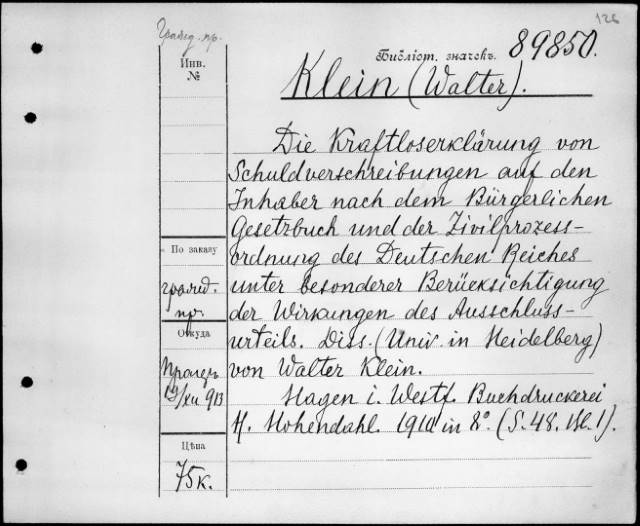 126
Гражд. пр.
Инв.
№
Библіот. значокъ. 89850.
Klein (Walter).
Die Kraftloserklärung von
Schuldverschreibungen auf den
Inhaber nach dem Bürgerlichen
Gesetzbuch und der Zivilprozess-
ordnung des Deutschen Reiches
unter besonderer Berücksichtigung
der Wirkungen des Ausschluss-
urteils. Diss. (Univ. in Heidelberg)
von Walter Klein.
Hagen i. Westf. Buchdruckerei
H. Hohendahl. 1910 in 8° (S. 48. Bl. 1).
По заказу
гражд.
пр.
Откуда
19/XII 913
Цѣна
75 к.